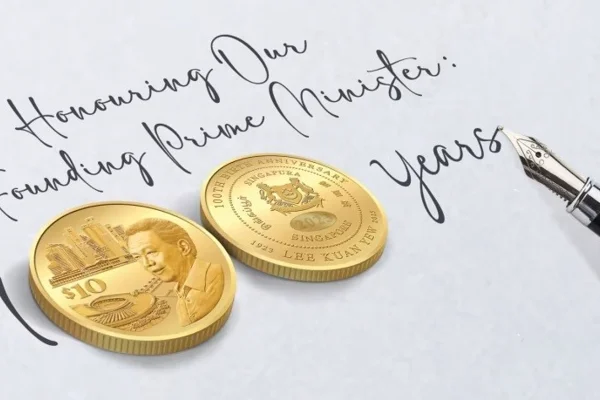 Honouring Our
Founding Prime Minister:
Years
$10
100TH BIRTH ANNIVERSARY
SINGAPURA
SINGAPORE
1923 LEE KUAN YEW 2023